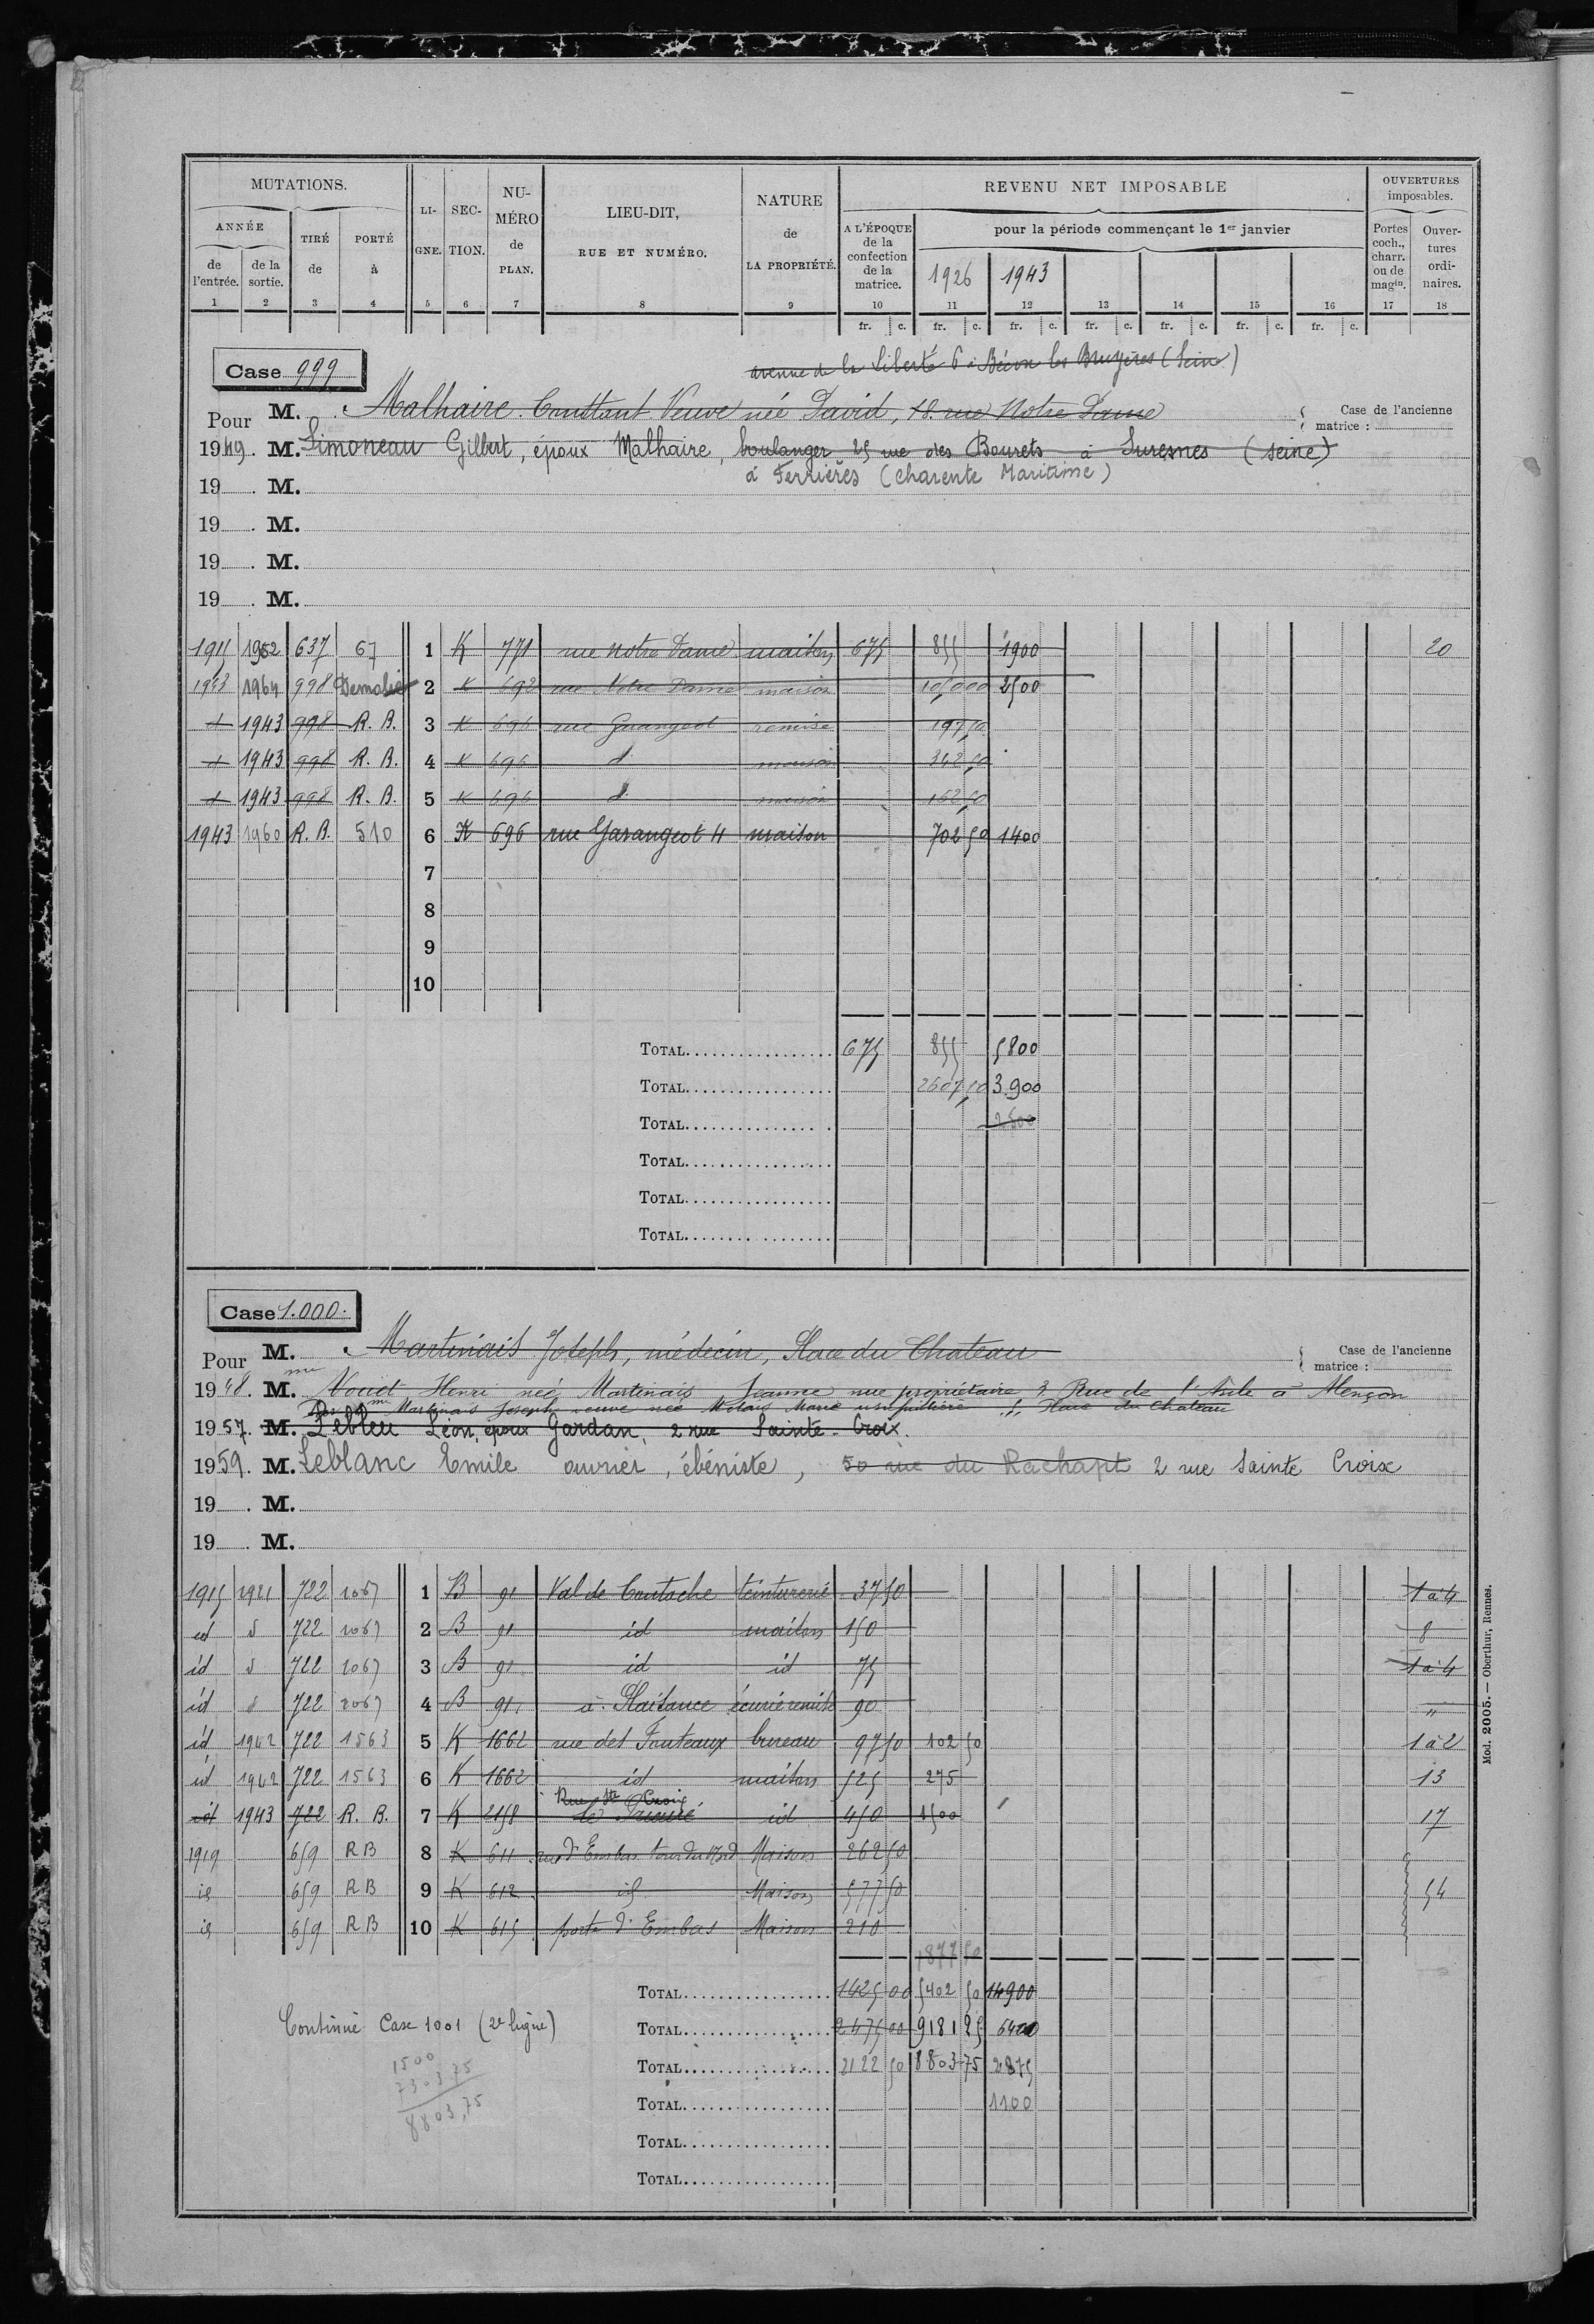 MUTATIONS.
ANNÉE
de l'entrée. de la sortie. TIRÉ de PORTÉ à LIGNE. SECTION. NUMÉRO de PLAN. LIEU-DIT, RUE ET NUMÉRO. NATURE de LA PROPRIÉTÉ.
REVENU NET IMPOSABLE
A L'ÉPOQUE de la confection de la matrice.
pour la période commençant le 1er janvier
1926 1943
OUVERTURES imposables.
Portes coch., charr. ou de magin. Ouvertures ordinaires.
1 2 3 4 5 6 7 8 9 10 11 12 13 14 15 16 17 18
fr. c. fr. c. fr. c. fr. c. fr. c. fr. c. fr. c.
Case 999
avenue de la Liberté 6 à Bécon les Bruyères (Seine)
Pour M. Malhaire Constant Veuve née David, 18 rue Notre Dame
Case de l'ancienne matrice :
1949. M. Simoneau Gilbert, époux Malhaire, boulanger 25 rue des Bourets à Suresnes (Seine)
à Ferrières (Charente Maritime)
19 . M.
19 . M.
19 . M.
19 . M.
1915 1952 637 67 1 K 771 rue Notre Dame maison 675 855 1900 20
1943 1964 998 Demolie 2 K 692 rue Notre Dame maison 105000 2500
d 1943 998 R. B. 3 K 696 rue Garangeot remise 197 50
d 1943 998 R. B. 4 K 696 d maison 342 50
d 1943 998 R. B. 5 K 696 d maison 162 50
1943 1960 R. B. 510 6 K 696 rue Garangeot 4 maison 702 50 1400
7
8
9
10
TOTAL 675 855 5800
TOTAL 2607 50 3900
TOTAL 2500
TOTAL
TOTAL
TOTAL
Case 1.000
Pour M. Martinais Joseph, médecin, Place du Chateau
Case de l'ancienne matrice :
1948. M. me Henri née Martinais Jeanne nue propriétaire 3 Rue de l'Asile à Alençon
Martinais Joseph veuve née Marie usufruitière Place du Chateau
1957. M. Lebleu Léon, époux Gardan, 2 rue Sainte-Croix.
1959. M. Leblanc Emile ouvrier, ébéniste, 50 rue du Rachapt 2 rue Sainte Croix
19 . M.
19 . M.
1915 1921 722 1067 1 B 91 Val de Coutache teinturerie 37 50 1 à 4
id d 722 1067 2 B 91 id maison 150 8
id d 722 1067 3 B 91 id id 75 1 à 4
id d 722 1067 4 B 91 à Plaisance écurie remise 90 "
id 1942 722 1563 5 K 1662 rue des Fouteaux bureau 97 50 102 50 1 à 2
id 1942 722 1563 6 K 1662 id maison 525 275 13
Rue Ste Croix
id 1943 722 R. B. 7 K 2158 Le Prieuré id 450 1500 17
1919 659 RB 8 K 611 rue d'Embas Maison 262 50
id 659 RB 9 K 612 id Maison 577 50 54
id 659 RB 10 K 615 porte d'Embas Maison 210
1877 50
TOTAL 1425 00 5402 50 14900
Continué Case 1001 (2e ligne)
TOTAL 2475 00 9181 25 6400
1500
7303 75
8803,75
TOTAL 2122 50 8803 75 2875
TOTAL 1100
TOTAL
TOTAL
Mod. 2005. — Oberthur, Rennes.